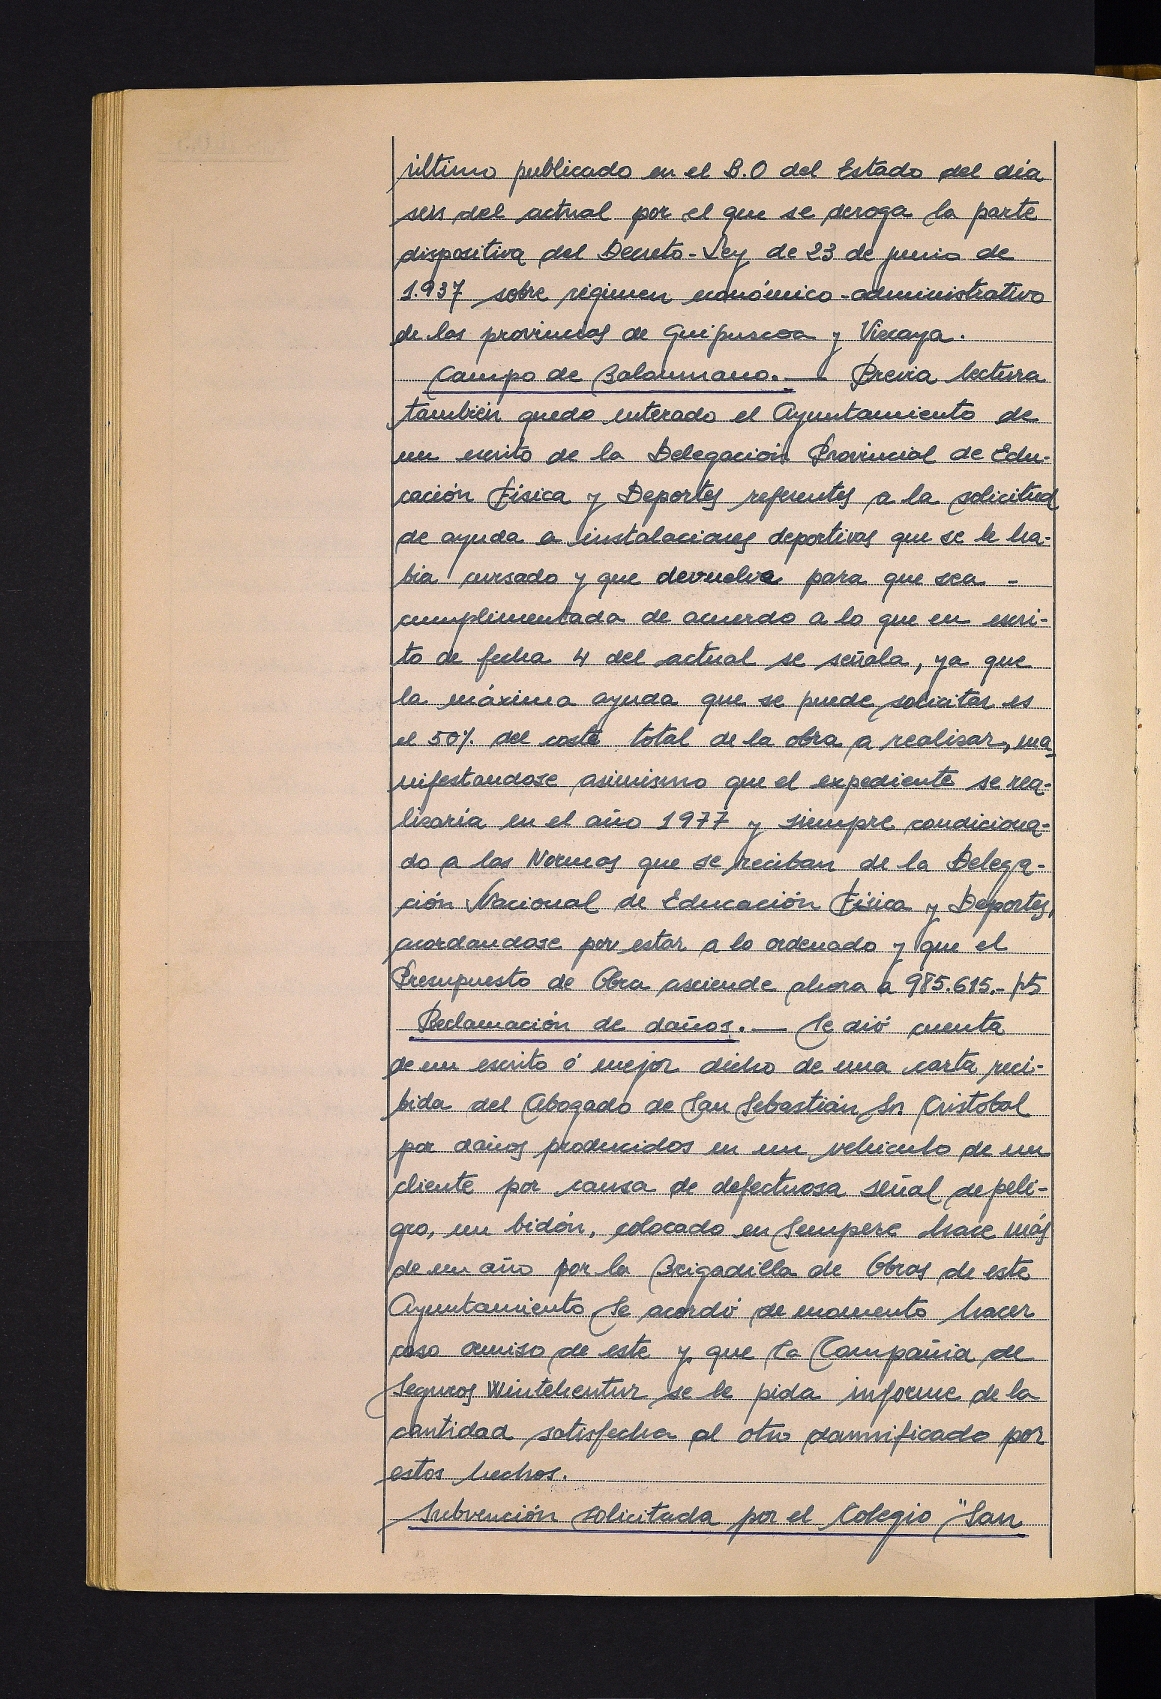 último publicado en el B.O del Estado del día
seis del actual por el que se deroga la parte
dispositiva del Decreto-Ley de 23 de junio de
1.937 sobre régimen económico-administrativo
de las provincias de Guipuscoa y Viscaya.
Campo de Balonmano.— Previa lectura
también quedo enterado el Ayuntamiento de
un escrito de la Delegación Provincial de Edu-
cación Física y Deportes referentes a la solicitud
de ayuda a instalaciones deportivas que se le ha-
bia cursado y que devuelve para que sea -
cumplimentada de acuerdo a lo que en escri-
to de fecha 4 del actual se señala, ya que
la máxima ayuda que se puede solicitar es
el 50% del coste total de la obra a realisar, ma
nifestandose asimismo que el expediente se rea-
lisaria en el año 1977 y siempre condiciona-
do a las Normas que se reciban de la Delega-
ción Nacional de Educación Física y Deportes,
acordandose por estar a lo ordenado y que el
Presupuesto de Obra asciende ahora a 985.615.- pts
Reclamación de daños.— Se dió cuenta
de un escrito ó mejor dicho de una carta reci-
bida del Abogado de San Sebastián Sr. Cristobal
por daños producidos en un vehiculo de un
cliente por causa de defectuosa señal de peli-
gro, un bidón, colocado en Sempere hace más
de un año por la Brigadilla de Obras de este
Ayuntamiento Se acordó de momento hacer
caso omiso de este y que la Compañia de
Seguros Wintehentur se le pida informe de la
cantidad satisfecha al otro damnificado por
estos hechos.
Subvención solicitada por el Colegio "San